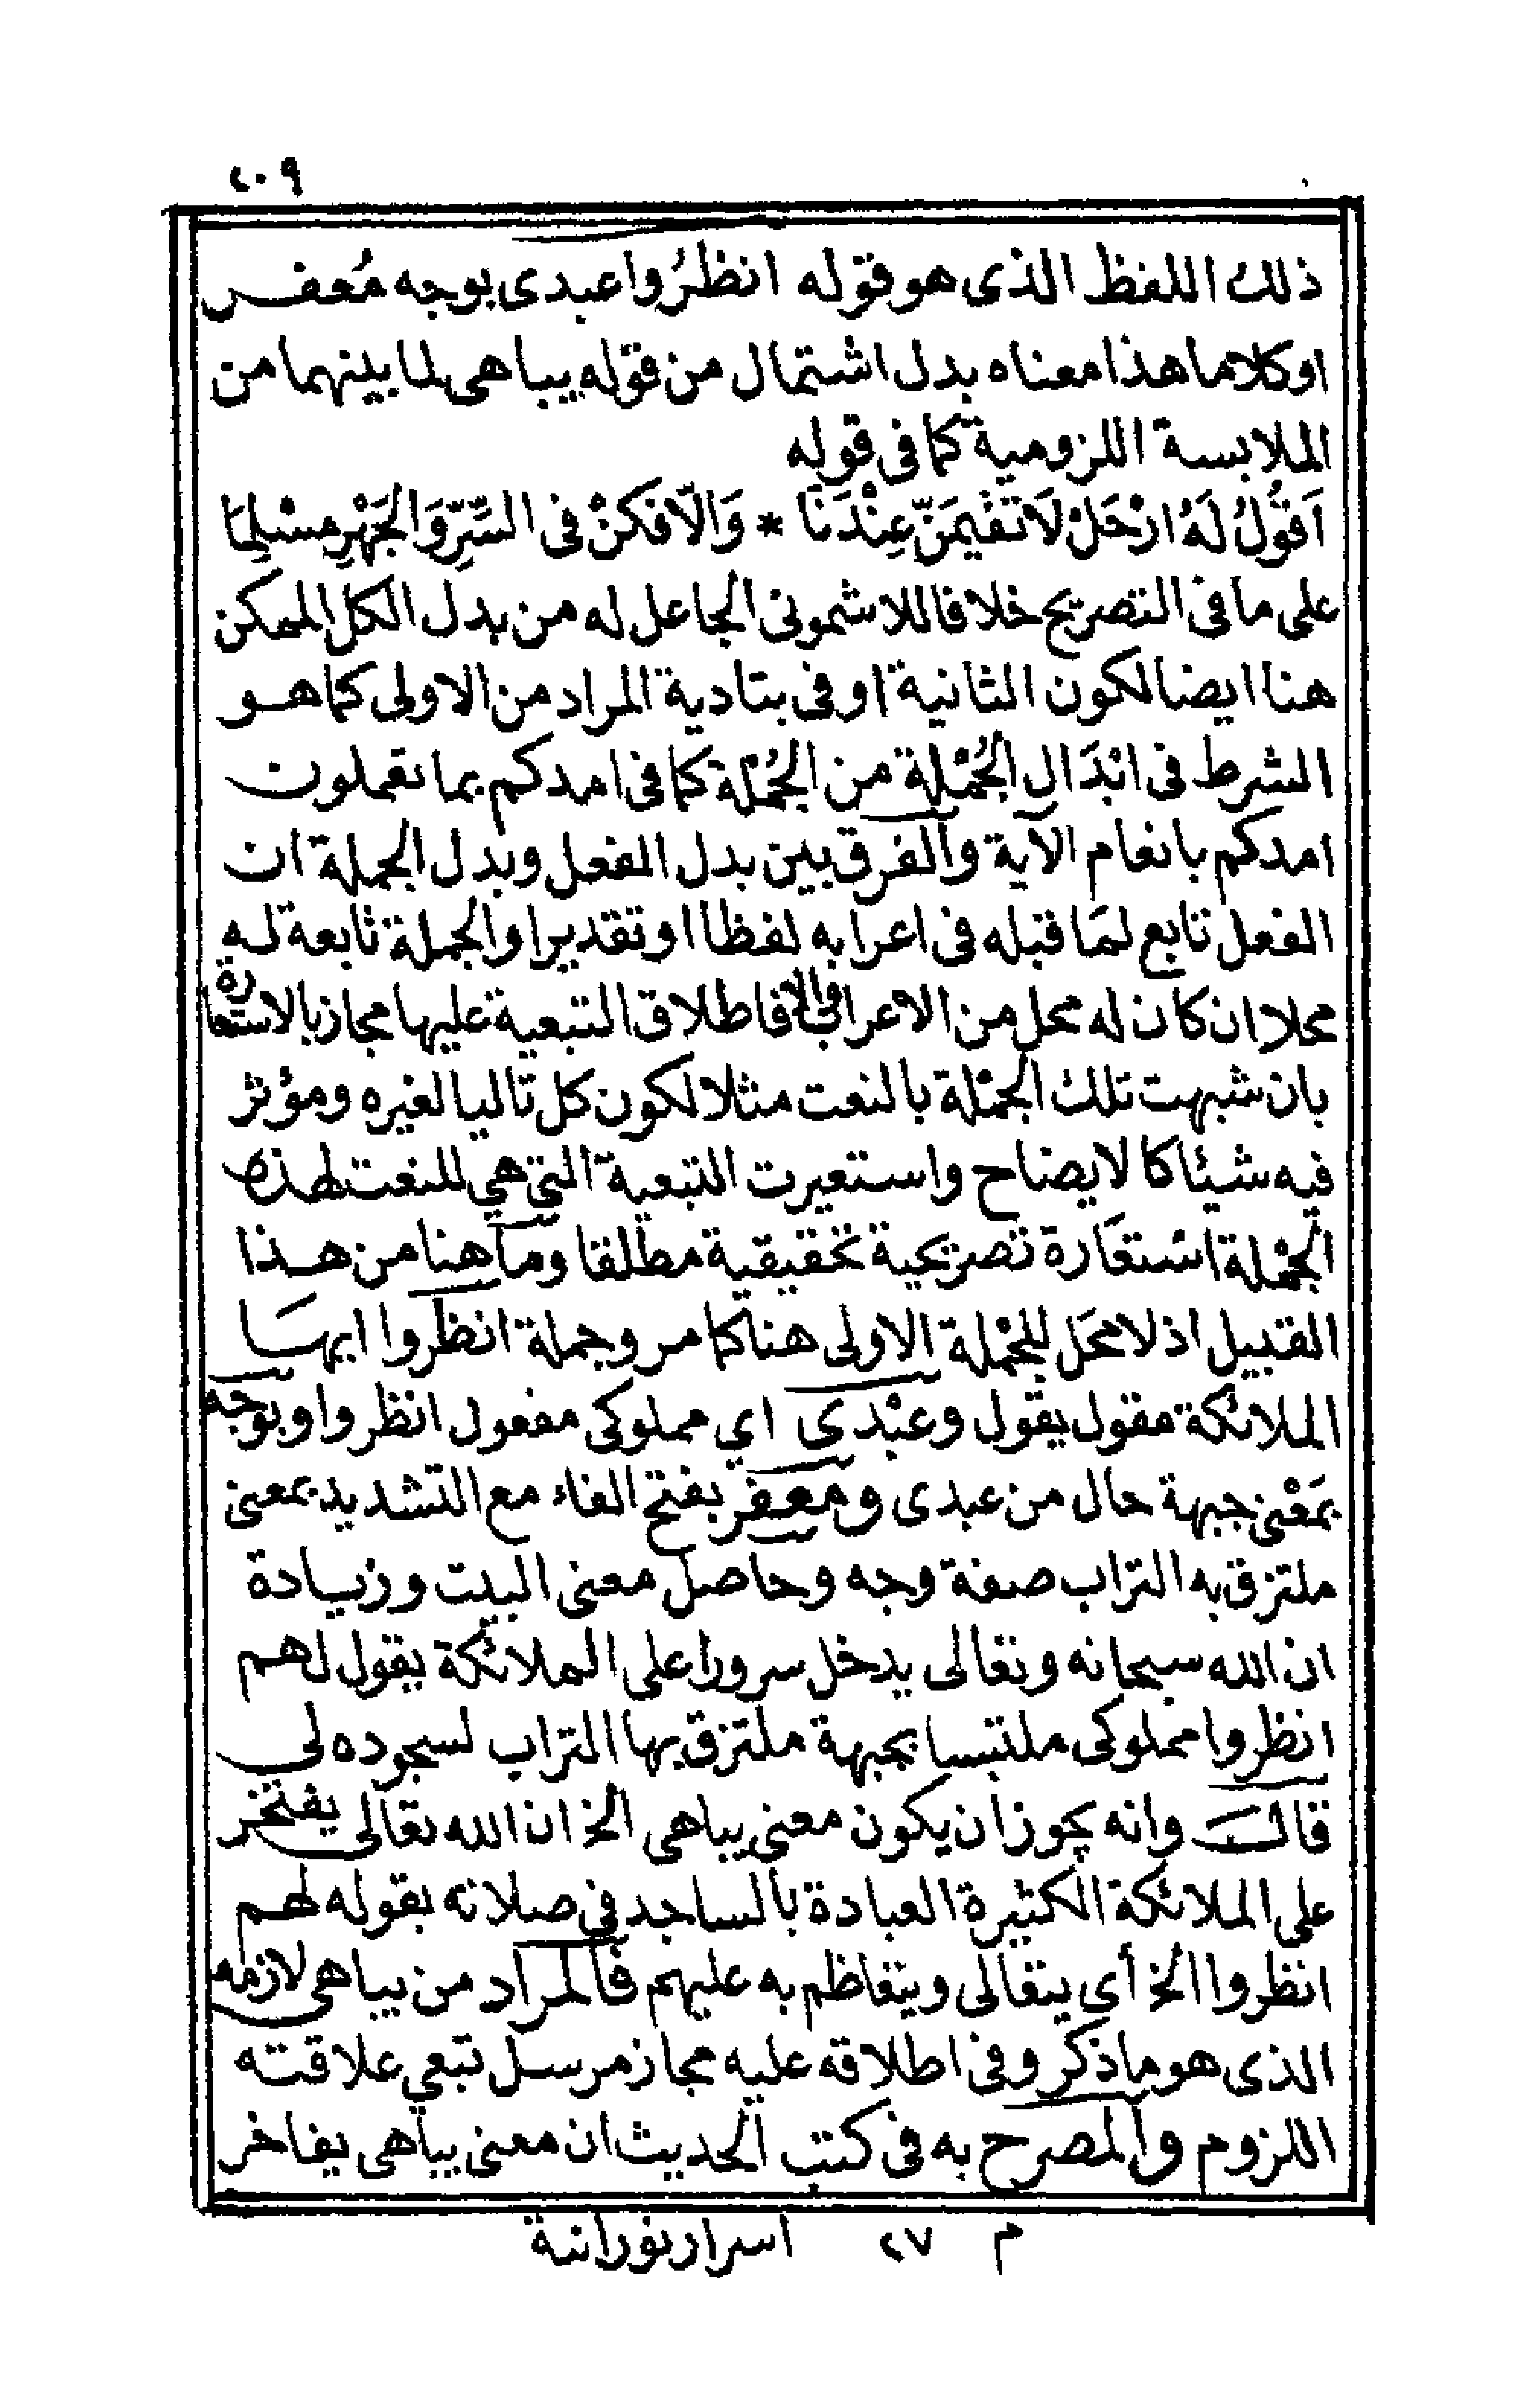 ٢٠٩
ذلك اللفظ الذى هو قوله انظرُوا عبدى بوجه مُعفر
اوكلاما هذا معناه بدل اشتمال من قوله يباهى لما بينهما من
الملابسة اللزومية كما فى قوله
اَقُولُ لَهُ ارْحَلْ لَا تقيمَنّ عِنْدَنَا * وَالّا فكنْ فى السِّرِّ وَالجَهْرِ مسْلِمَا
على ما فى التصريح خلافا للاشمونى الجاعل له من بدل الكل الممكن
هنا ايضا لكون الثانية اوفى بتادية المراد من الاولى كما هو
الشرط فى ابْدَال الجُمْلة من الجُمْلة كما فى امدكم بما تعملون
امدكم بانعام الآية والفرق بين بدل الفعل وبدل الجملة ان
الفعل تابع لمَا قبله فى اعرابه لفظا او تقديرا والجملة تابعة له
محلا ان كان له محل من الاعراب والا فاطلاق التبعية عليها مجاز بالاستعارة
بان شبهت تلك الجمْلة بالنعت مثلا لكون كل تاليا لغيره ومؤثر
فيه شيئا كالايضاح واستعيرت التبعية التي هي للنعت لهذه
الجمْلة استعَارة تصريحية تحقيقية مطلقا وما هنا من هذا
القبيل اذ لا محَل للجمْلة الاولى هنا كما مر وجملة انظروا ايهَا
الملائكة مقول يقول وعبْدى اي مملوكى مفعول انظروا وبوجه
بمَعْنى جبهة حال من عبدى ومعفر بفتح الفاء مع التشديد بمعنى
ملتزق به التراب صفة وجه وحاصل معنى البيت وزيادة
ان الله سبحانه وتعالى يدخل سرورا على الملائكة يقول لهم
انظروا مملوكى ملتبسا بجبهة ملتزق بها التراب لسجوده لى
قالت وانه يجوز ان يكون معنى يباهى الخ ان الله تعالى يفتخر
على الملائكة الكثيرة العبادة بالساجد في صلاته بقوله لهم
انظروا الخ أي يتعالى ويتعاظم به عليهم فالمراد من يباهى لازمه
الذى هو ما ذكر وفى اطلاقه عليه مجاز مرسل تبعي علاقته
اللزوم والمصرح به فى كتب الحديث ان معنى يباهى يفاخر
م ٢٧ اسرار نورانية